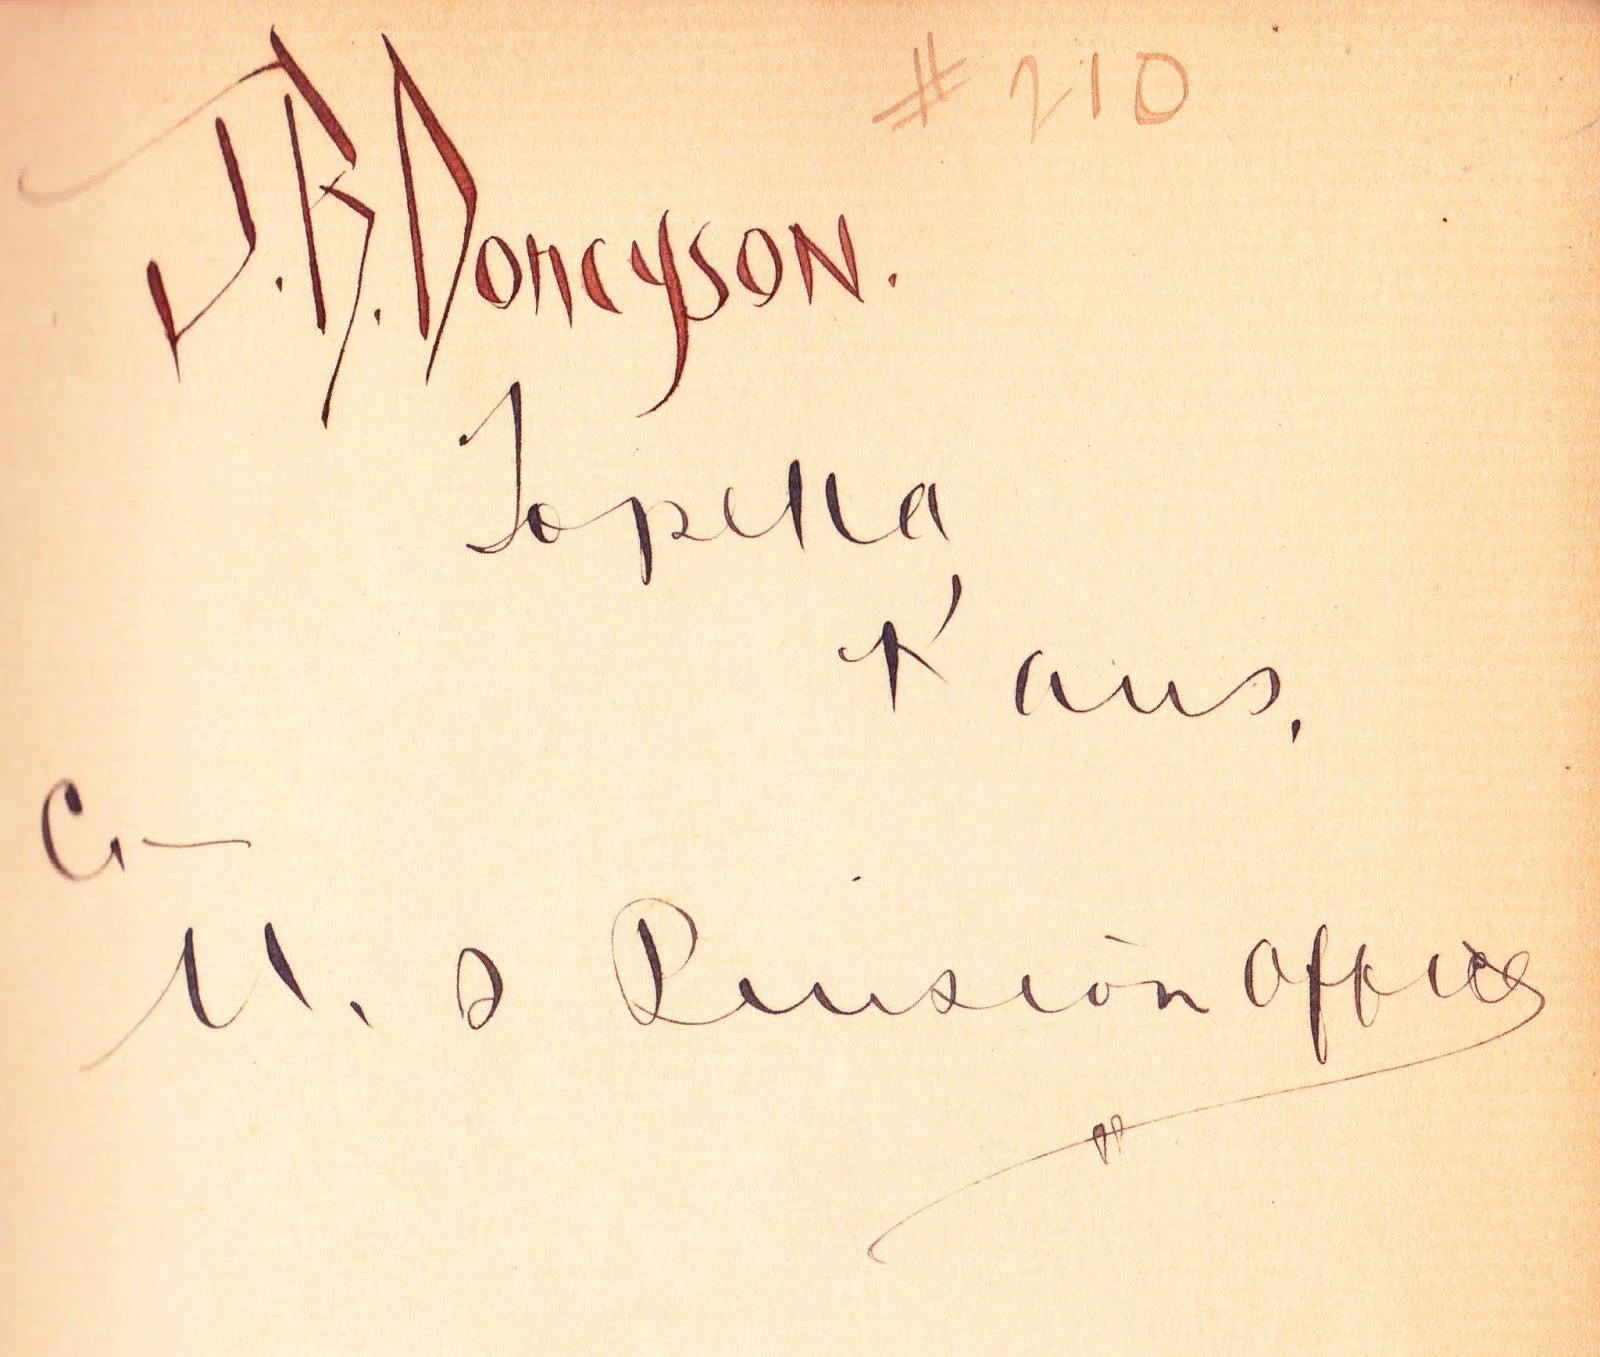 # 210
J.R. Doncyson.
Topeka
Kans.
U. S Pension Office